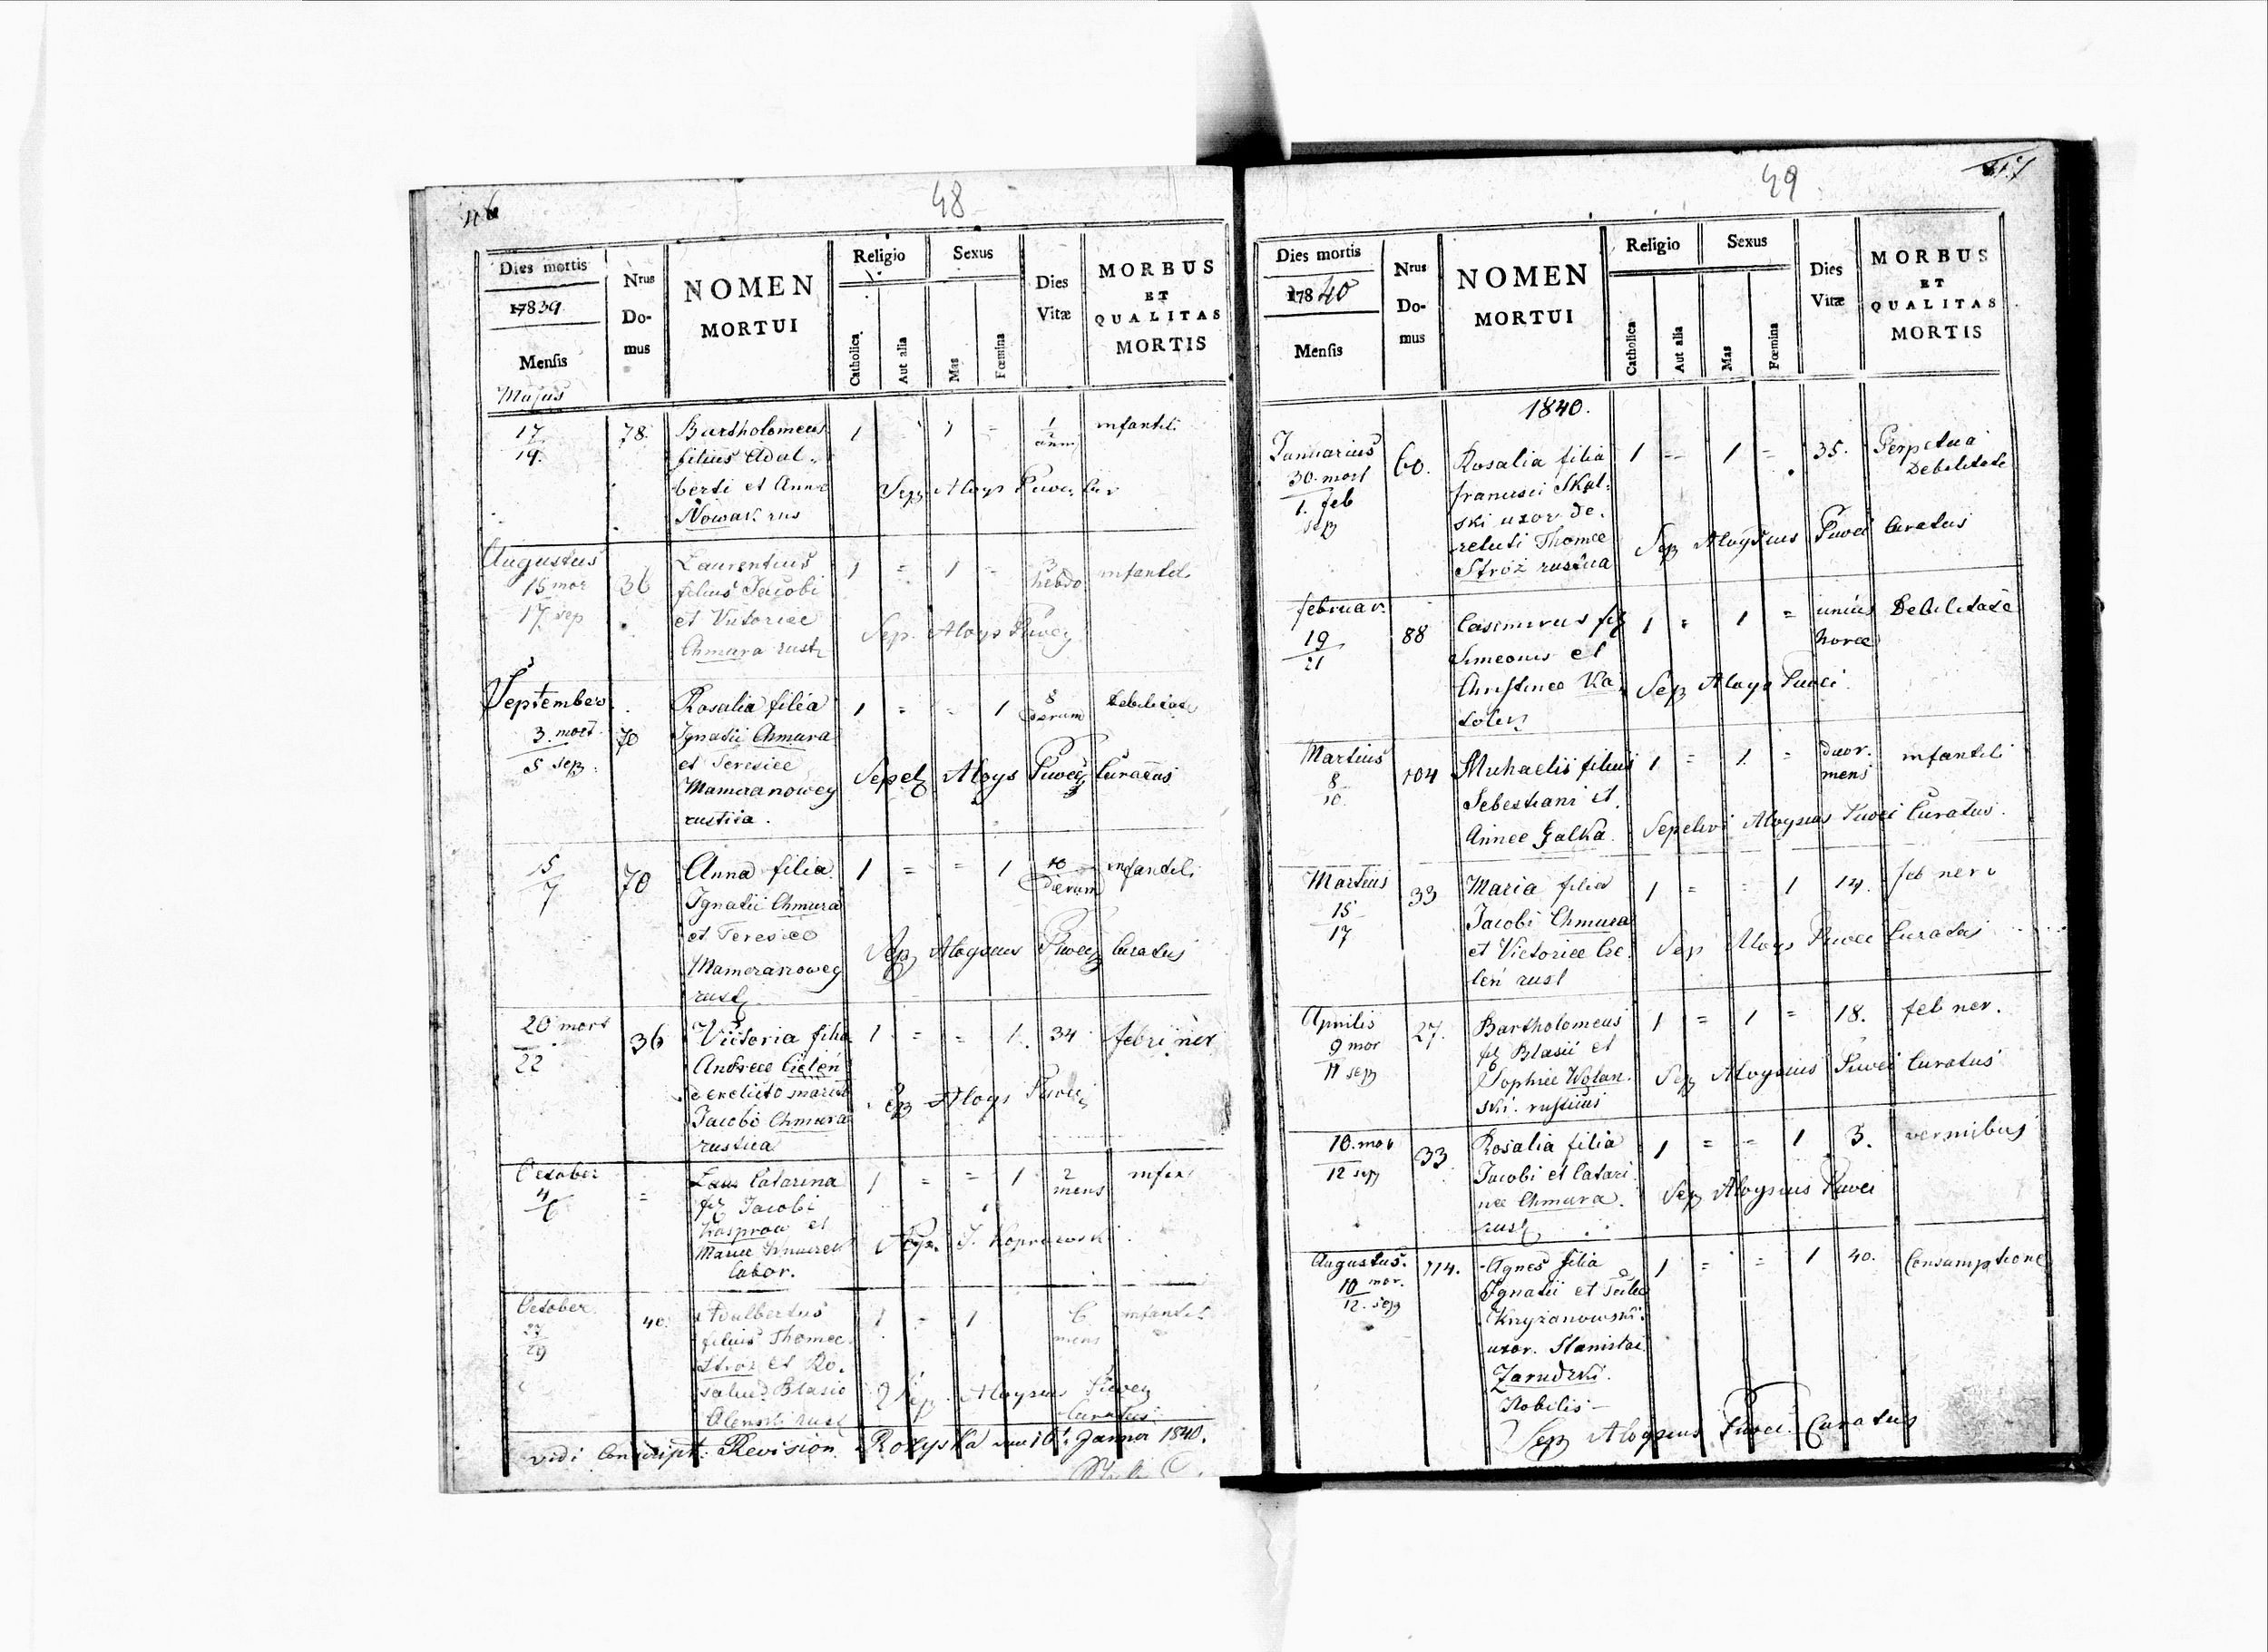 46
48
Dies mortis
17839
Mensis
Majus
Nrus
Do-
mus
NOMEN
MORTUI
Religio
Catholica
Aut alia
Sexus
Mas
Fœmina
Dies
Vitæ
MORBUS
ET
QUALITAS
MORTIS
17
19.
78.
Bartholomeus
filius Adal-
berti et Annæ
Nowak rus
1
1 -
1
ann
infantili
Sep Aloys
Augustus
15 mor
17 sep
36
Laurentius
filius Jacobi
et Victoriæ
Chmura rust
1 = 1 -
3
hebdo
infantil.
Sep. Aloys
September
3. mort
5 sep.
70
Rosalia filia
Ignatii Chmura
et Teresiæ
Mameranowey
rustica.
1 = - 1
8
dierum
Debilitate
Sepel Aloys Curatus
15
7
70
Anna filia
Ignatii Chmura
et Teresiæ
Mameranowey
rust
1 = = 1
10
dierum
infantili
Sep Aloysius Curatus
20 mort
22
36
Victoria filia
Andreæ Cielen
derelicto marito
Jacobo Chmura
rustica
1 = = 1.
34
febri ner
Sep Aloys
October
4
6
=
Catarina
fil Jacobi
Kasprow et
Mariæ
labor.
1 = = 1
2
mens
infan
Sep. J. Koprowski
October
27
29
40.
Adalbertus
filius Thomæ
Stroz et Ro-
saliæ Blasio
Olenski rust
1 = 1
6
mens
infantil
Sep Aloysius
Curatus
vidi Conscript. Revision Rozyska 16t Janner 1840.
49
Dies mortis
17840
Mensis
Nrus
Do-
mus
NOMEN
MORTUI
Religio
Catholica
Aut alia
Sexus
Mas
Fœmina
Dies
Vitæ
MORBUS
ET
QUALITAS
MORTIS
1840.
Januarius
30. mort
1. feb
sep
60.
Rosalia filia
francisci Skal-
ski uxor de-
relicti Thomæ
Stroz rustica
1 -- 1 -
35.
Perpetua
Debilitate
Sep Aloysius Curatus
februar.
19
21
88
Casimirus fil
Simeonis et
Christinæ Ko
1 = 1 =
unius
horæ
Debilitate
Sep Aloys
Martius
8
10.
104
Michaelis filius
Sebestiani et
Annæ Galka.
1 = 1. =
duor.
mens
infantili
Sepelivi Aloysius Curatus.
Martius
15
17
33
Maria filia
Jacobi Chmura
et Victoriæ Cie
len rust
1 = = 1
14.
feb ner
Sep Aloys Curatus
Aprilis
9 mor
11 sep
27.
Bartholomeus
fil Blasii et
Sophiæ Wolan
ski. rusticus
1 = 1 =
18.
feb ner.
Sep Aloysius Curatus
10. mor
12 sep
33
Rosalia filia
Jacobi et Catari
næ Chmura.
rust
1 = - 1
3.
vermibus
Sep Aloysius
Augustus.
10 mor.
12. sep
114.
Agnes filia
Ignatii et
Krzyżanowski.
uxor. Stanislai
Zarudzki.
Nobilis -
1 = = 1
40.
Consumptione
Sep Aloysius Curatus